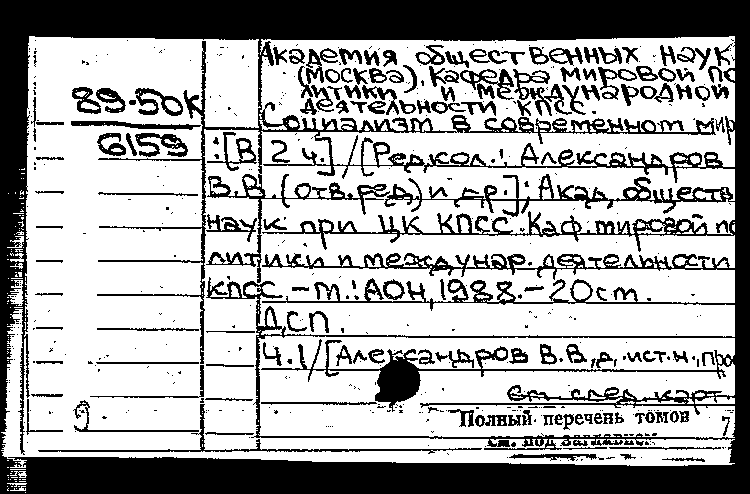 Академия общественных наук
(Москва). Кафедра мировой по
литики и международной
деятельности КПСС.
89-50К
Социализм в современном мир
6159
:[В 2 ч.] / [Редкол.: Александров
В.В. (отв.ред.) и др.]; Акад. обществ
наук при ЦК КПСС. Каф. мировой по
литики и междунар. деятельности
КПСС. - М.: АОН, 1988. - 20 см.
ДСП.
Ч.1/[Александров В.В., д. ист. н., про
см. след. карт.
9
Полный перечень томов 7
см. под заглавием